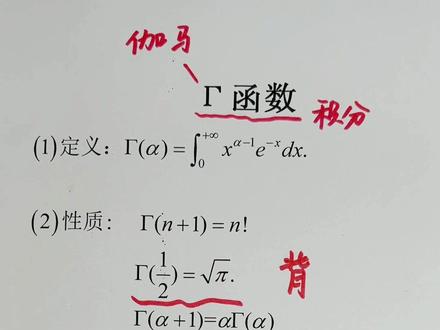 伽马
Γ 函数
积分
(1)定义：Γ(α)=∫₀⁺∞ x^{α−1}e^{−x}dx.
(2)性质： Γ(n+1)=n!
Γ(1/2)=√π.
背
Γ(α+1)=αΓ(α)